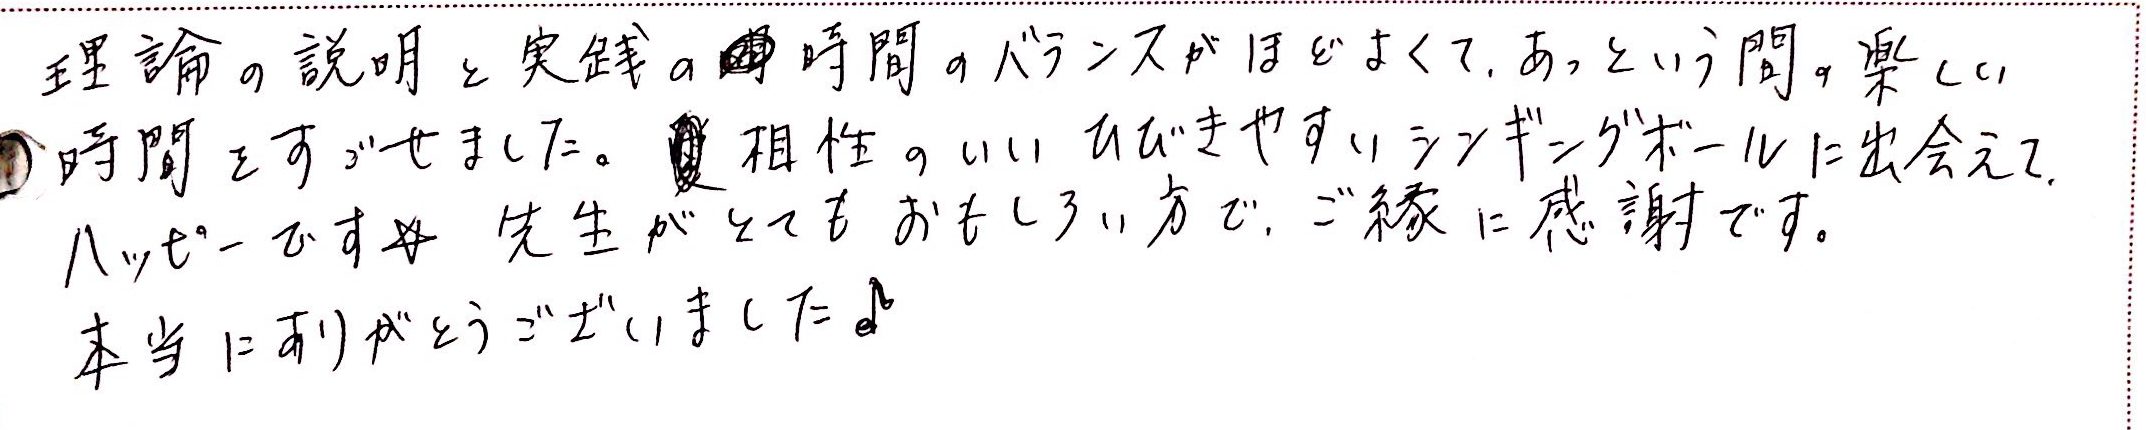 理論の説明と実践の時間のバランスがほどよくて、あっという間の楽しい
時間をすごせました。相性のいいひびきやすいシンギングボールに出会えて、
ハッピーです☆ 先生がとてもおもしろい方で、ご縁に感謝です。
本当にありがとうございました♪